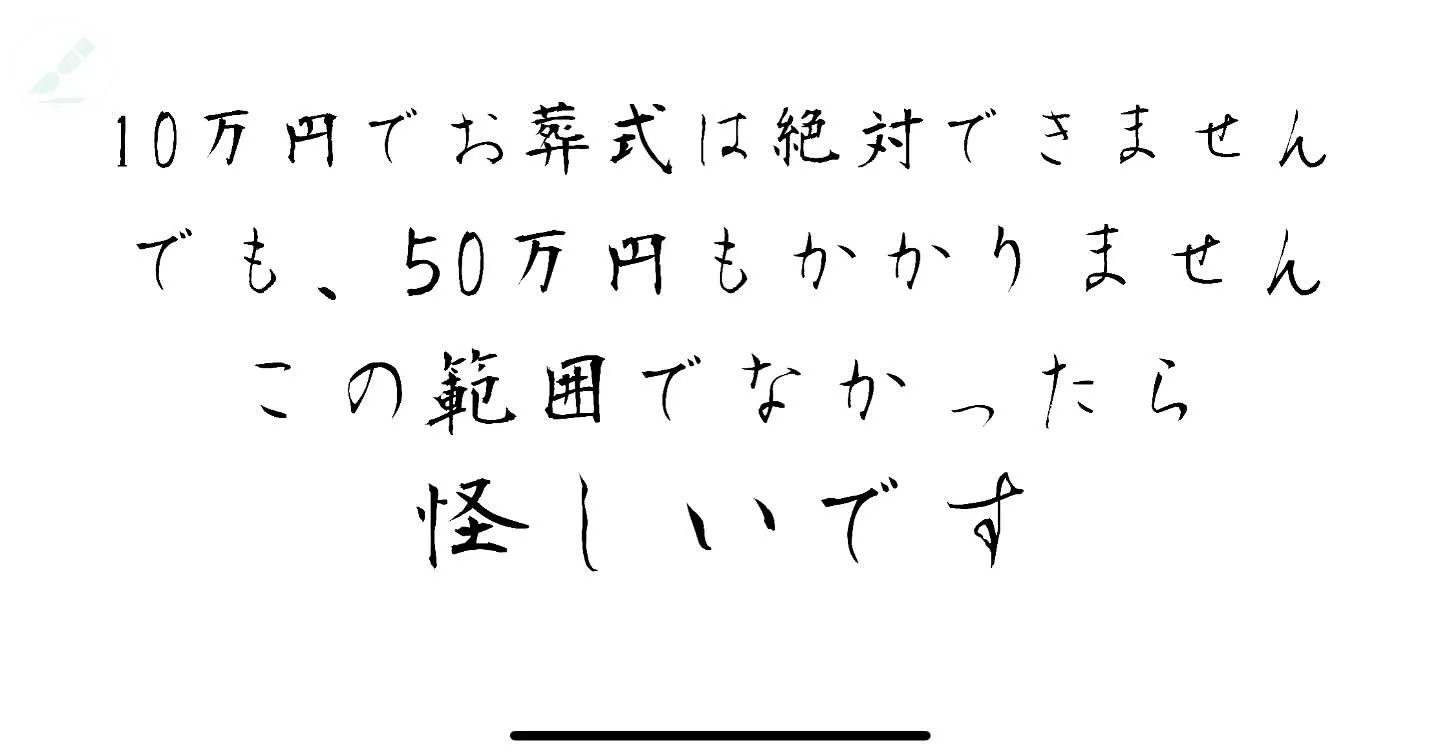 10万円でお葬式は絶対できません
でも、50万円もかかりません
この範囲でなかったら
怪しいです